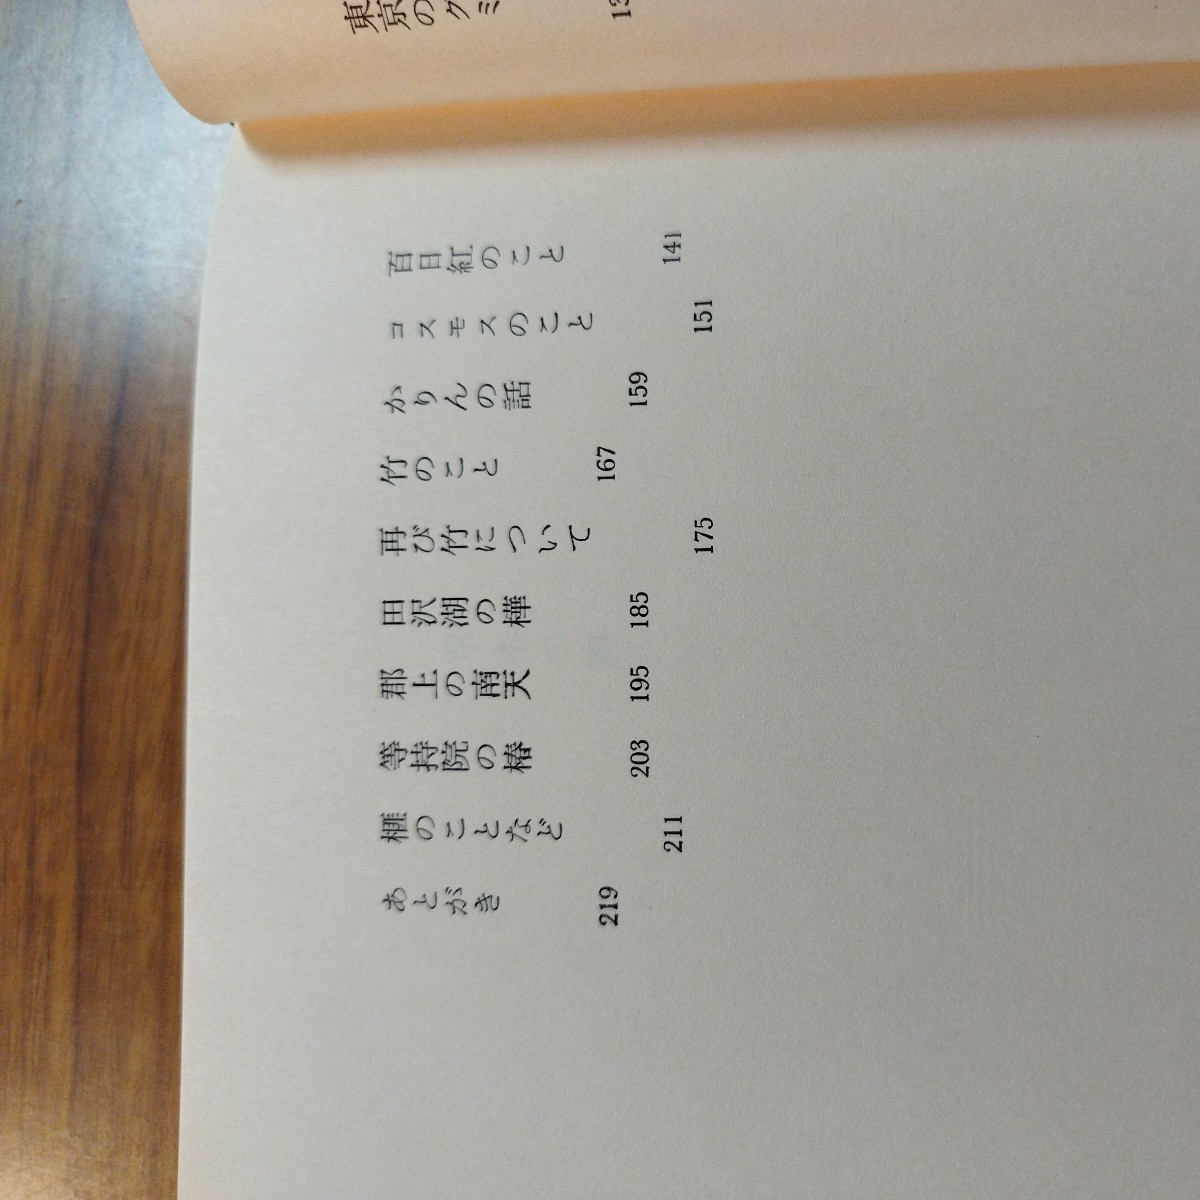 東京のグミ 13
百日紅のこと 141
コスモスのこと 151
かりんの話 159
竹のこと 167
再び竹について 175
田沢湖の樺 185
郡上の南天 195
等持院の椿 203
榧のことなど 211
あとがき 219